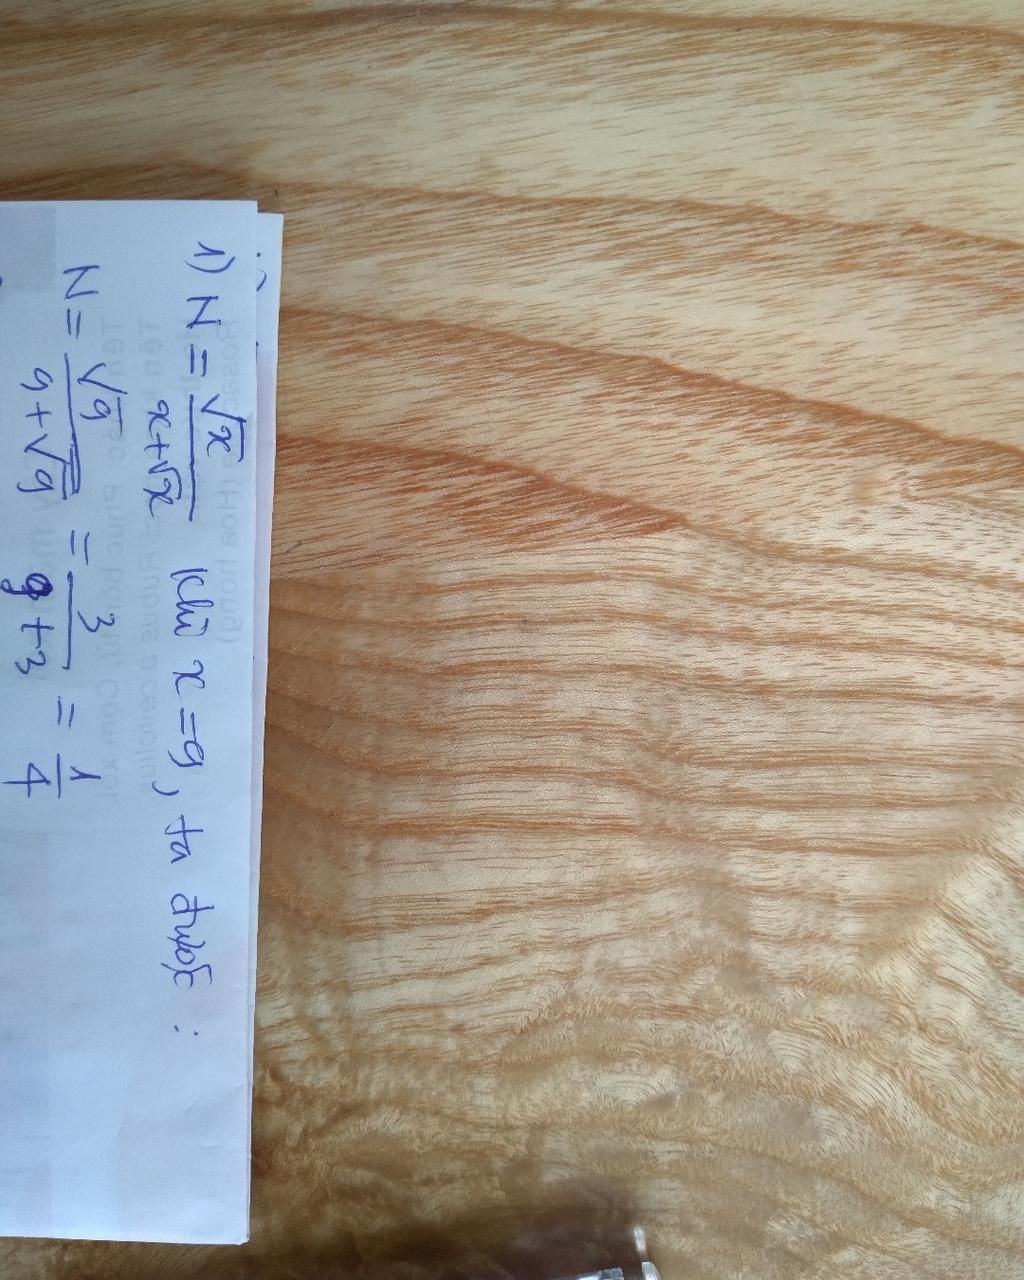 1) N = √x / (x+√x) Khi x = 9, ta được :
N = √9 / (9+√9) = 3 / (9+3) = 1 / 4